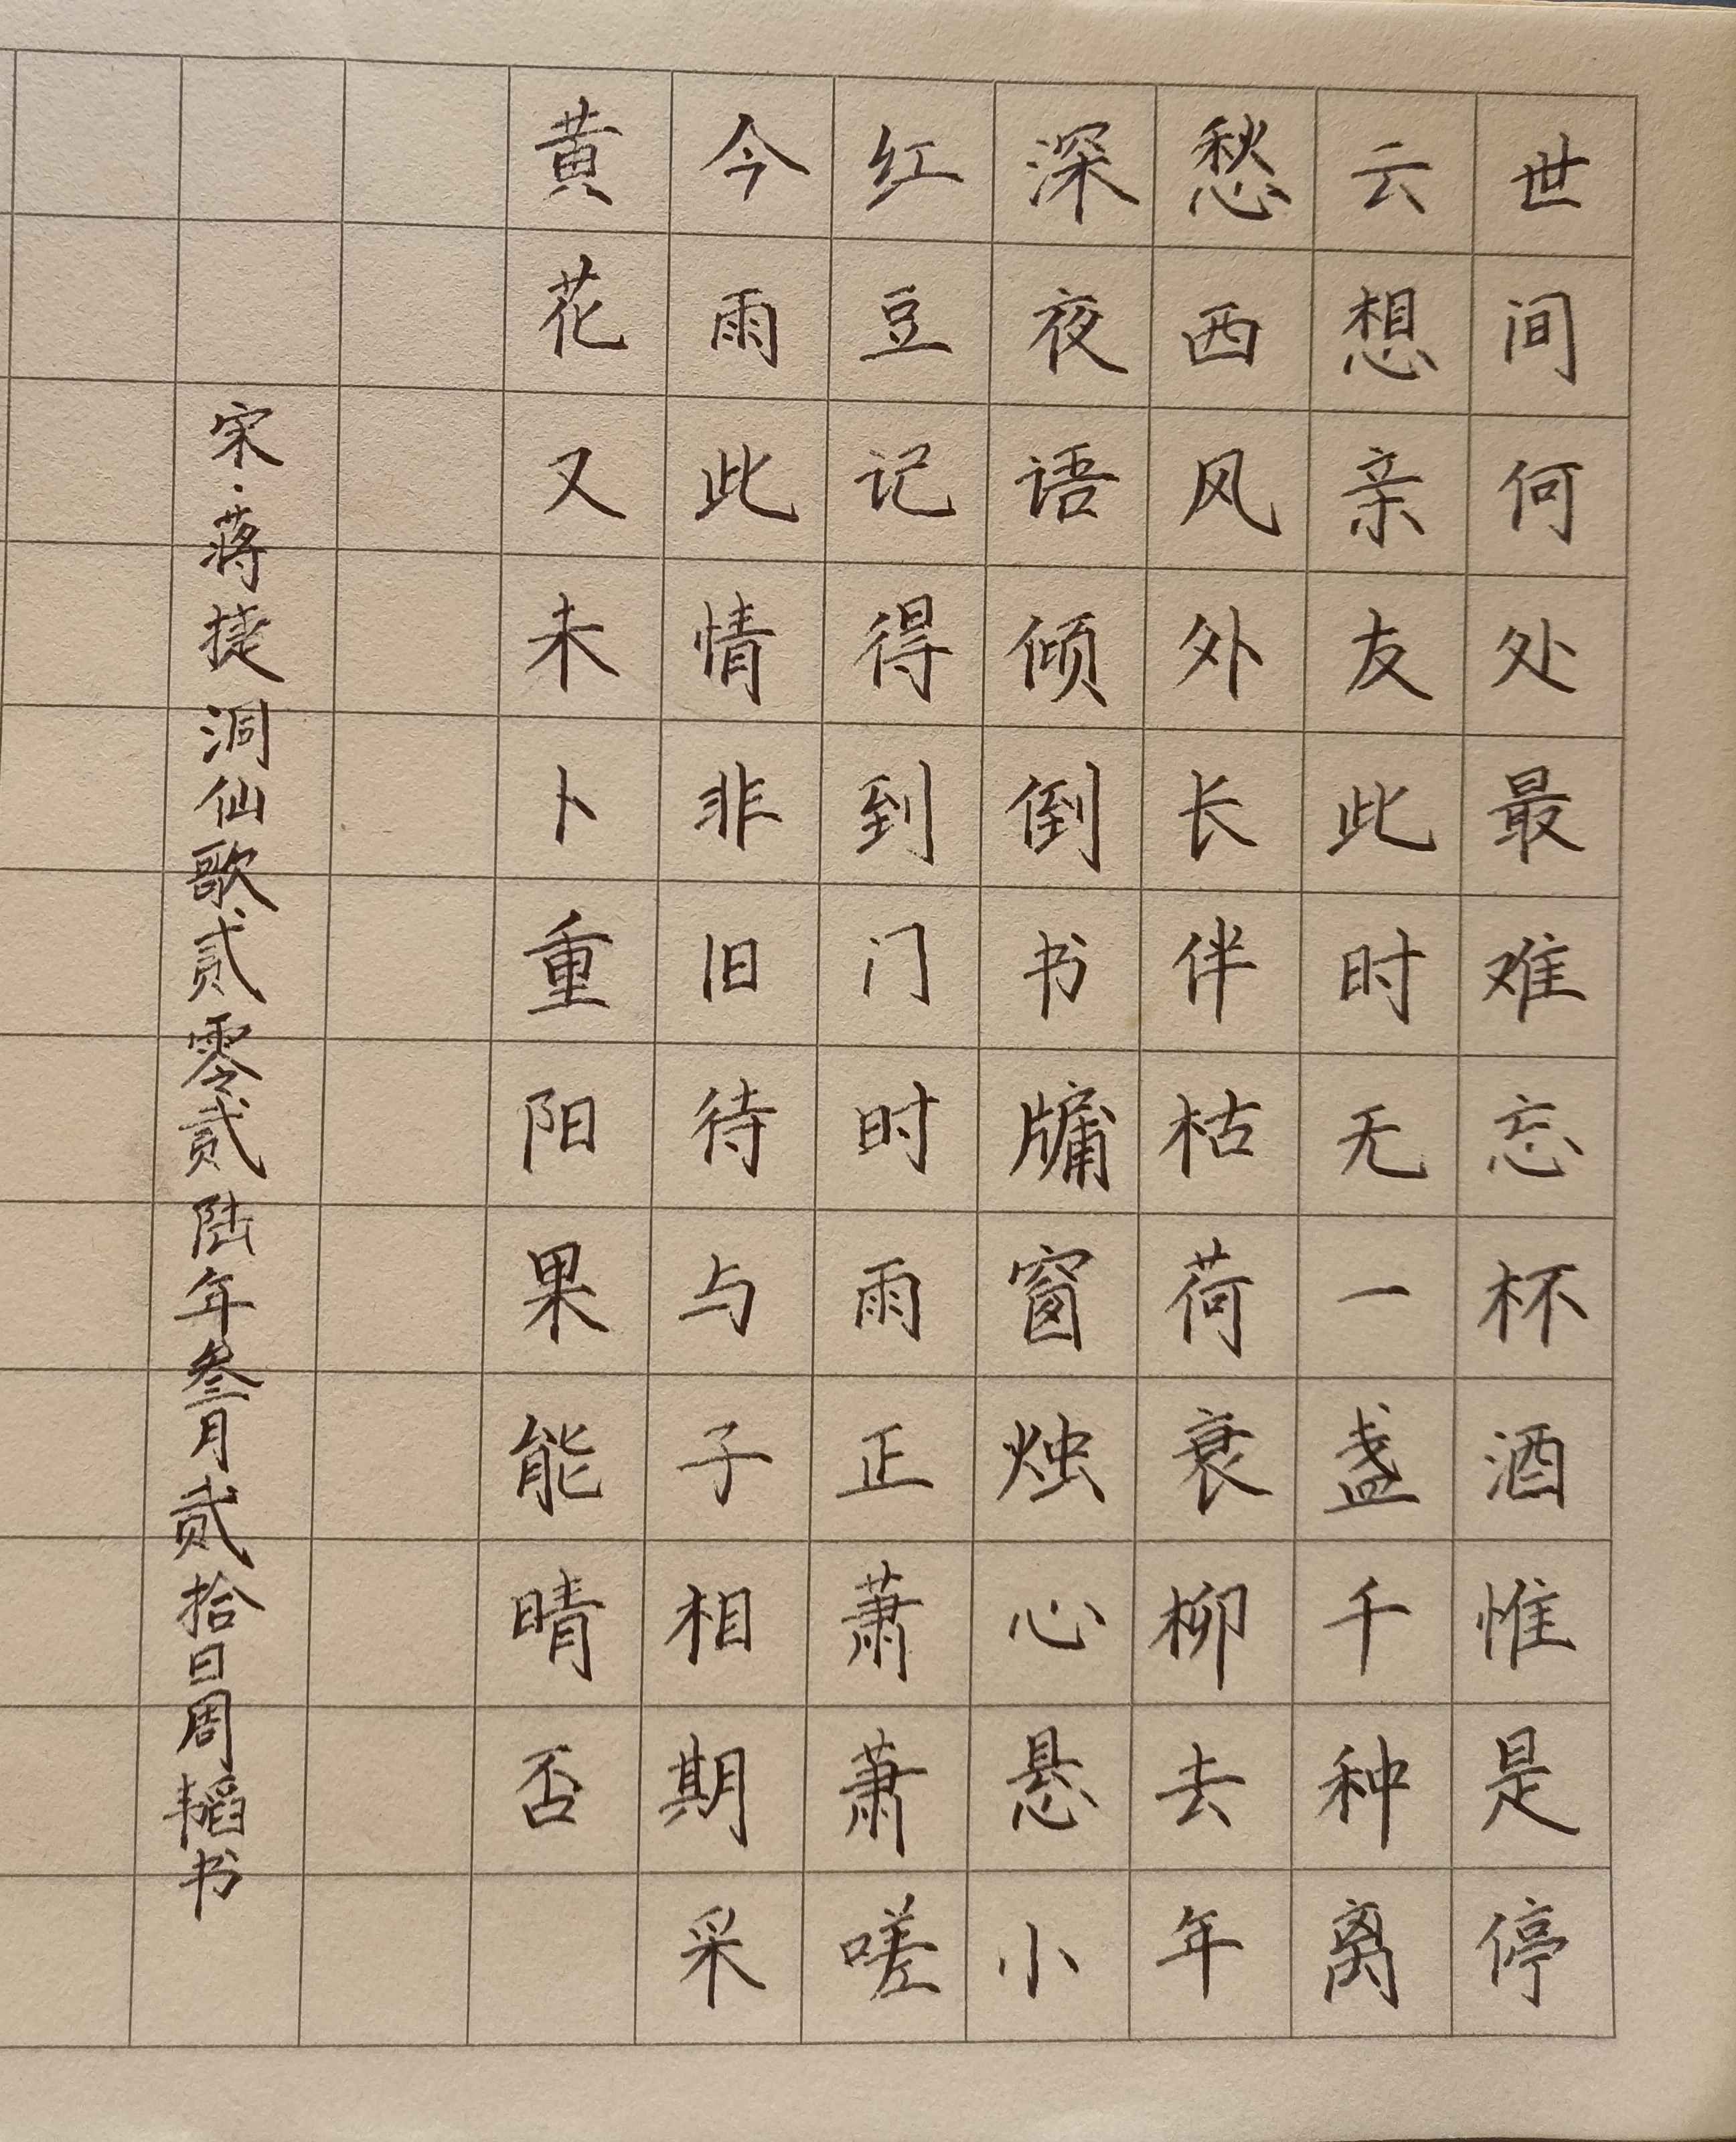 世间何处最难忘杯酒惟是停
云想亲友此时无一盏千种离
愁西风外长伴枯荷衰柳去年
深夜语倾倒书牖窗烛心悬小
红豆记得到门时雨正萧萧嗟
今雨此情非旧待与子相期采
黄花又未卜重阳果能晴否
宋·蒋捷洞仙歌贰零贰陆年叁月贰拾日周韬书